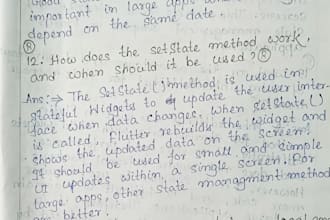 important in large apps where
depend on the same date.
Ⓡ
12. How does the setState method work,
and when should it be used? Ⓡ
Ans:⇒ The SetState() method is used in
stateful Widgets to update the user inter-
face when data changes. when setState()
is called, Flutter rebuilds the widget and
shows the updated data on the screen.
It should be used for small and simple
UI updates within a single screen. For
large apps, other state managment method
are better.